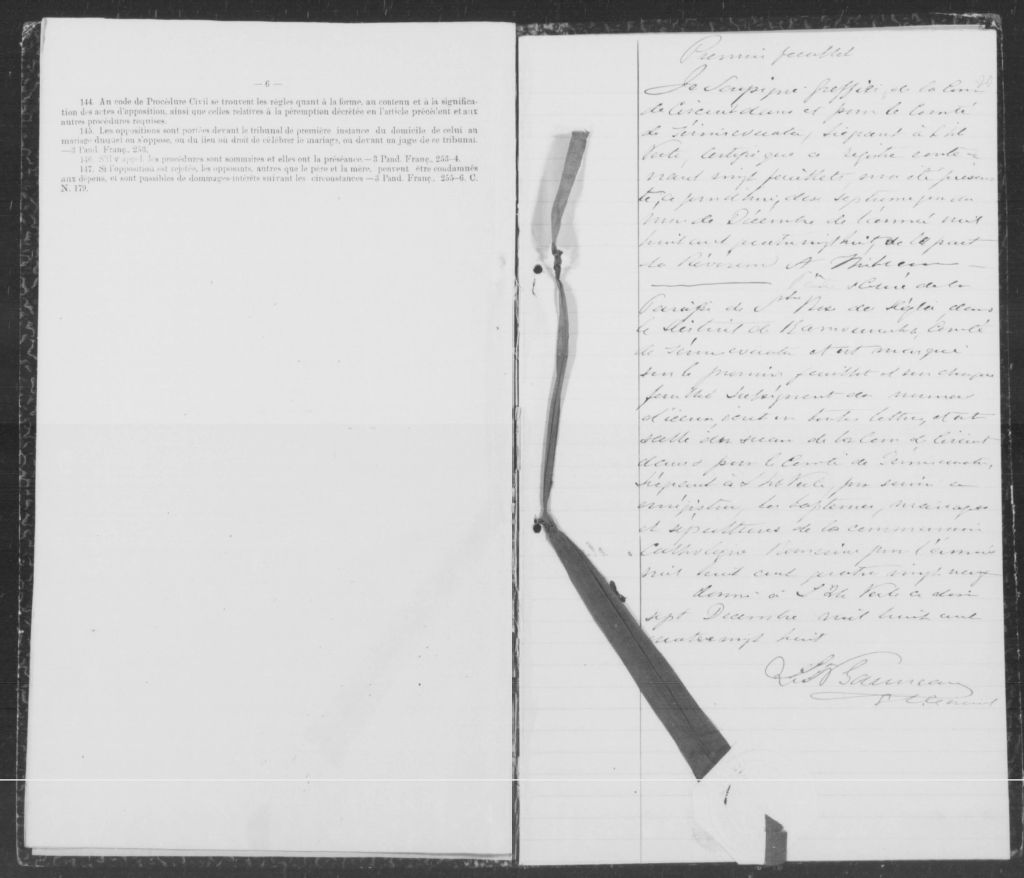 — 6 —
144. Au code de Procédure Civil se trouvent les règles quant à la forme, au contenu et à la significa-
tion des actes d'opposition, ainsi que celles relatives à la péremption décrétée en l'article précédent et aux
autres procédures requises.
145. Les oppositions sont portées devant le tribunal de première instance du domicile de celui au
mariage duquel on s'oppose, ou du lieu où doit de célébrer le mariage, ou devant un juge de ce tribunal.
—3 Pand. Franç., 253.
146. S'il y appel, les procédures sont sommaires et elles ont la préséance.—3 Pand. Franç., 253-4.
147. Si l'opposition est rejetée, les opposants, autres que le père et la mère, peuvent être condamnés
aux dépens, et sont passibles de dommages-intérêts suivant les circonstances.—3 Pand. Franç., 255-6. C.
N. 179.
Premier feuillet
Je Soussigné greffier de la Cour
de Circuit dans et pour le Comté
de Témiscouata, Siégeant à L'Isle
Verte Certifie que ce registre conte-
nant vingt feuillets, m'a été présen-
té, ce jourd'hui, dix septième jour du
mois de Décembre de l'année mil
huit cent quatre vingt huit, de la part
du Révérend
Curé de la
Paroisse de dans
le District de Kamouraska, Comté
de Témiscouata et est marqué
sur le premier feuillet et sur chaque
feuillet Subséquent du numéro
d'icelui, écrit en toutes lettres, et est
scellé du sceau de la Cour de Circuit
dans pour le Comté de Témiscouata,
Siégeant à L'Isle Verte, pour servir à
enrégistrer les baptêmes, mariages
et sépultures de la communion
Catholique Romaine pour l'année
mil huit cent quatre vingt neuf
donné à L'Isle Verte ce dix
sept Décembre mil huit cent
quatre vingt huit